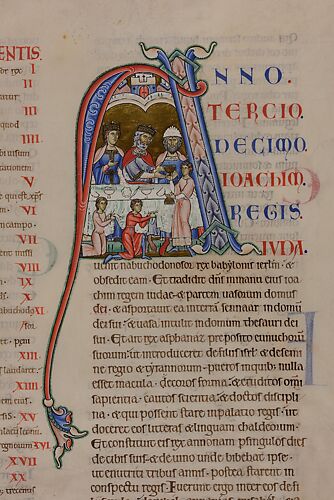 ENTIS.
I
II
III
quod
IIII
V
VI
in campo
VII
VIII
XI
XIII
XV
XVI
XVII
XX
ANNO.
TERCIO
DECIMO.
IOACHIM.
REGIS.
IUDA.
Uenit nabuchodonosor rex babylonis ierlm· &
obsedit eam. Et tradidit dns in manu eius ioa
chim regem iudae· & partem uasorum domus
dei· & asportauit ea in terram sennaar in domum
dei sui· & uasa intulit in domum thesauri dei
sui. Et ait rex asphanaz preposito eunuchorum
suorum· ut introduceret de filiis isrl· & de semi
ne regio & tyrannorum· pueros in quib; nulla
esset macula· decoros forma· & eruditos omi
sapientia· cautos scientia· & doctos discipli
na· & qui possent stare in palatio regis· ut
doceret eos litteras & linguam chaldeorum.
Et constituit eis rex annonam p singulos dies
de cibis suis· & de uino unde bibebat ipse·
ut enutriti tribus annis· postea starent in
conspectu regis. Fuerunt ergo inter eos de